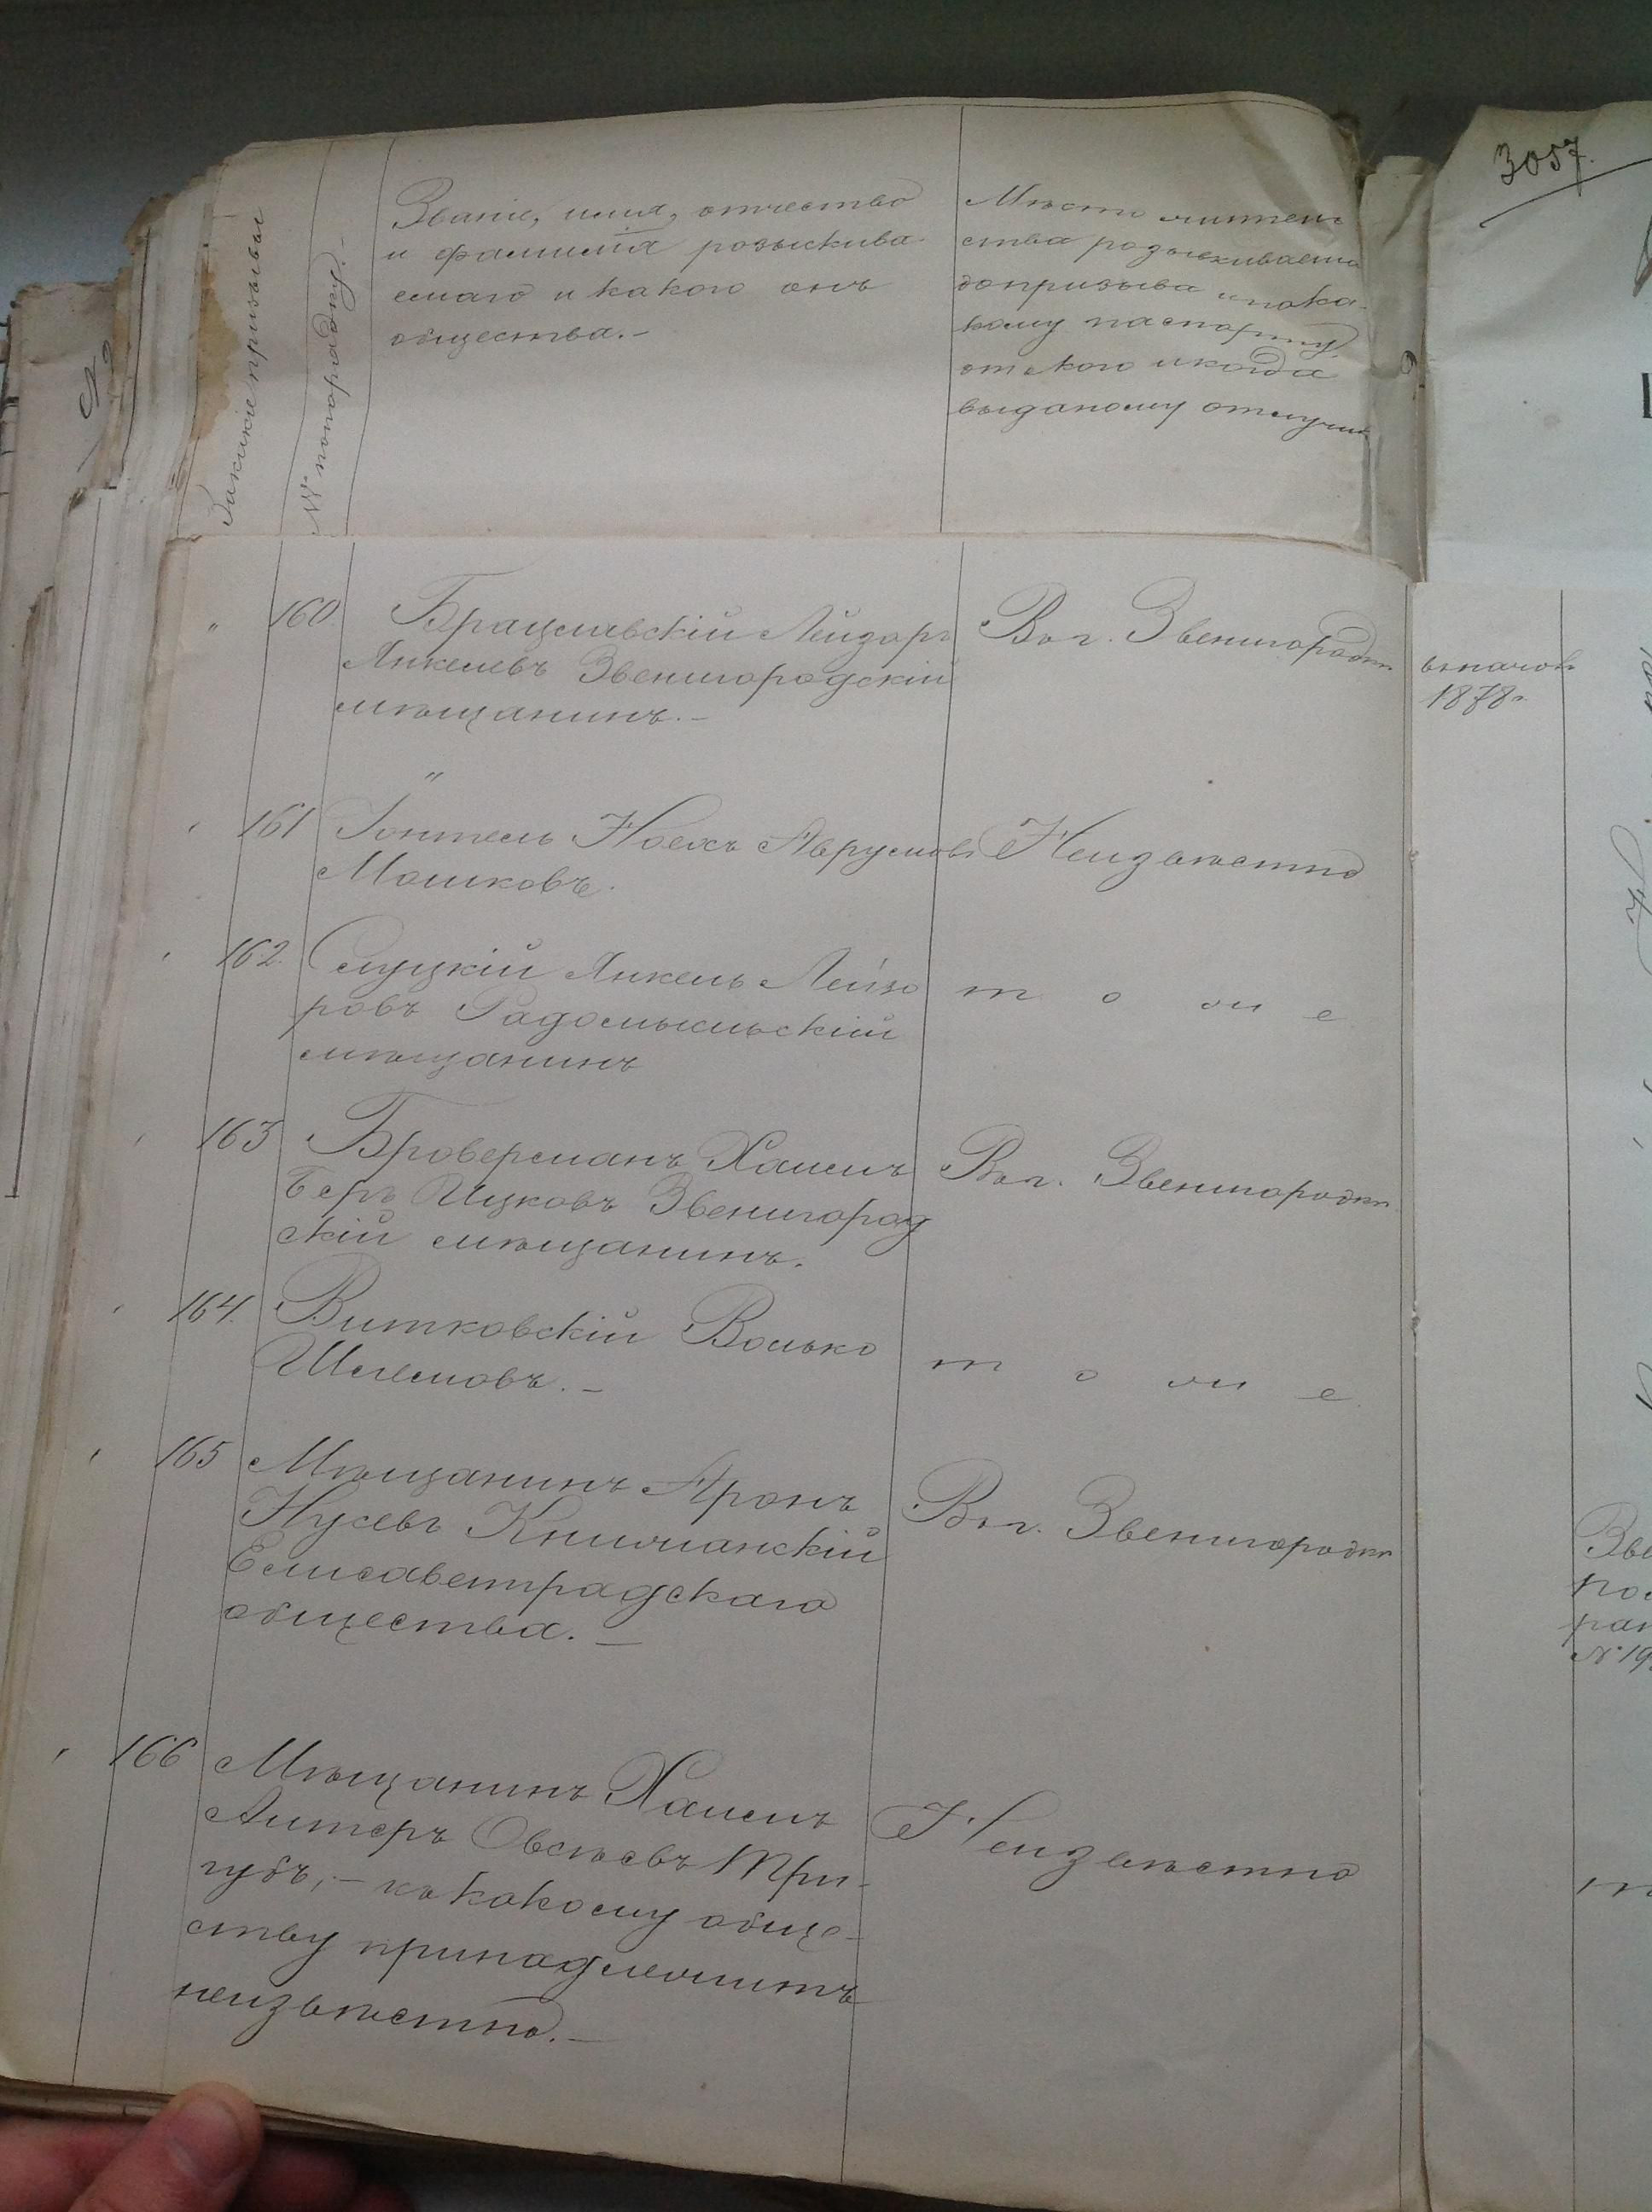 3057.
За какіе призывы
№ по порядку.-
Званіе, имя, отчество
и фамилія розыскива-
емаго и какого онъ
общества.-
Мѣсто житель
ства розыскиваема
до призыва и по ка-
кому паспорту,
от кого и когда
выданому отлучил
160. Брацлавскій Лейзоръ
Янкелевъ Звенигородскій
мѣщанинъ.-
Въ г. Звенигородкѣ
въ началѣ
1878 г.
"
161 Гонтель Ноехъ Аврумовъ
Мошковъ.
Неизвѣстно
162. Слуцкій Янкель Лейзо
ровъ Радомысльскій
мѣщанинъ
т о ж е
163 Броверманъ Хаимъ
Беръ Ицковъ Звенигород
скій мѣщанинъ.
Въ г. Звенигородкѣ
164. Витковскій Волько
Шлемовъ.-
т о ж е
165 Мѣщанинъ Аронъ
Нусевъ Книжанскій
Елисаветградскаго
общества.-
Въ г. Звенигородкѣ
Зве
№ 19
166 Мѣщанинъ Хаимъ
Алтеръ Овсѣевъ Три-
губъ,- къ какому обще-
ству принадлежитъ
неизвѣстно.-
Неизвѣстно